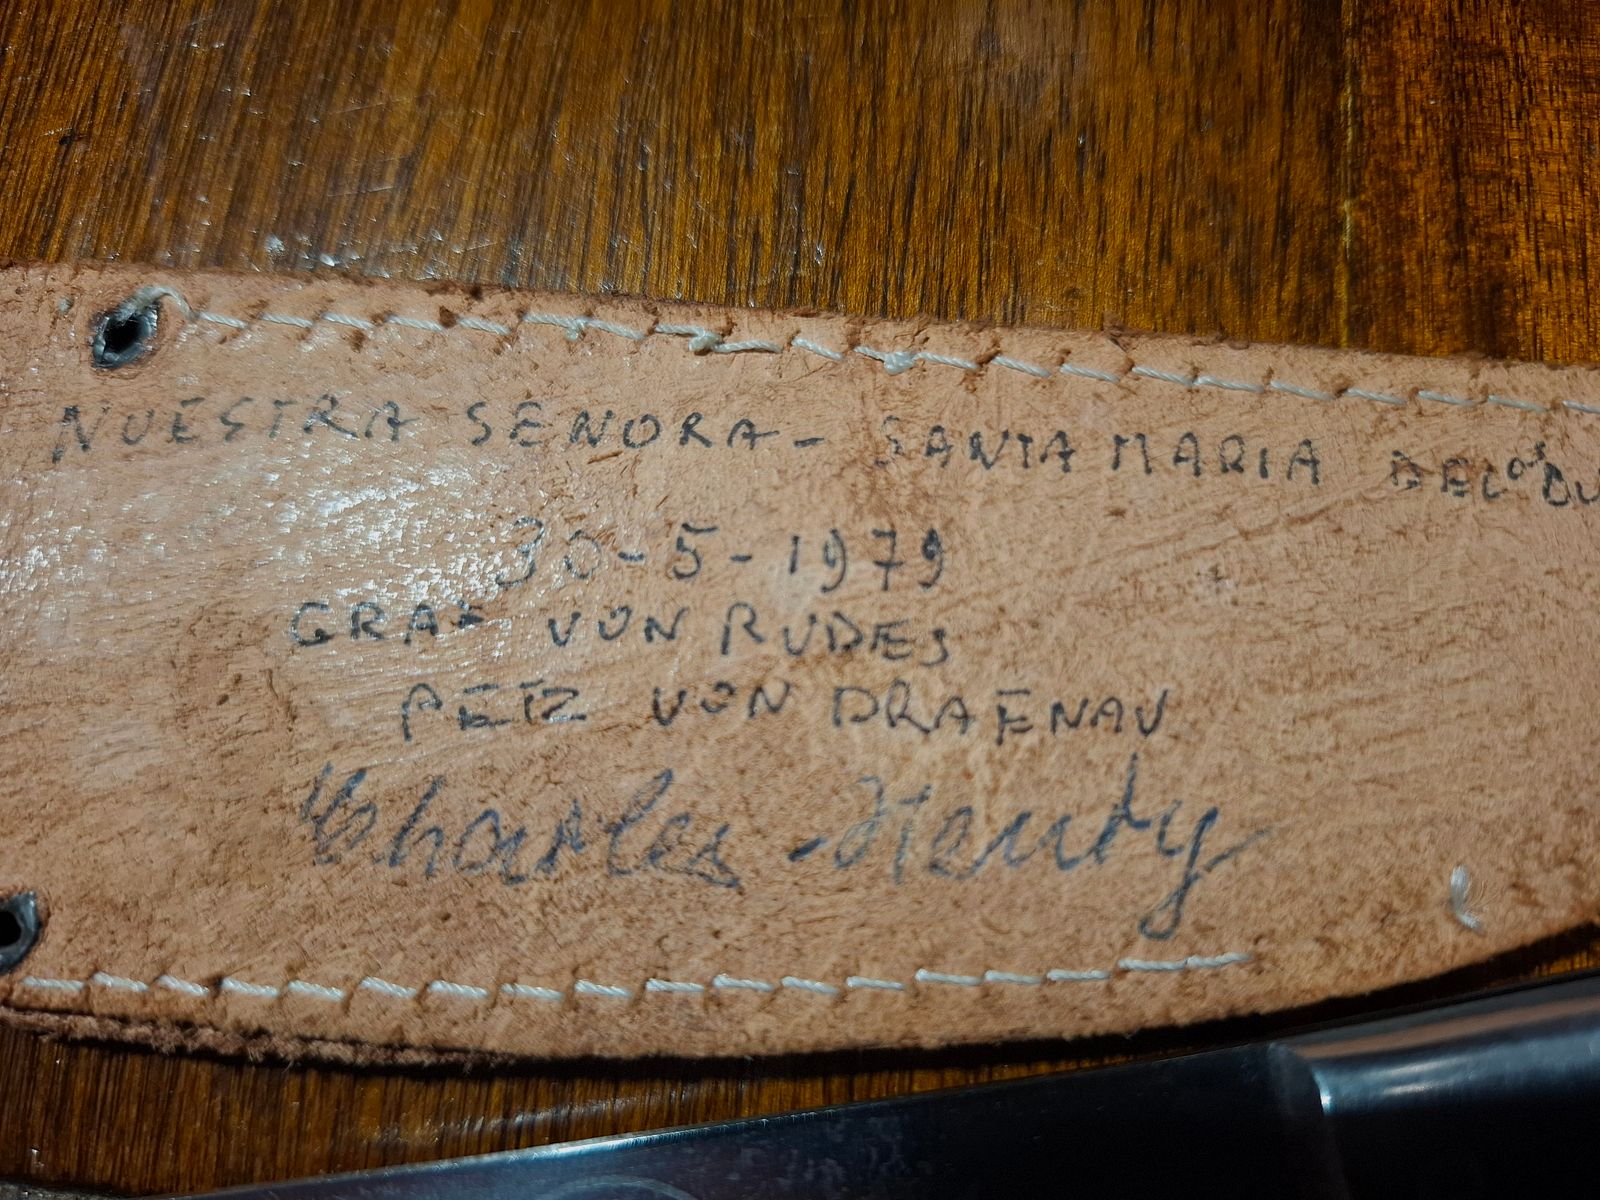 NUESTRA SENORA - SANTA MARIA DE LOS
30-5-1979
GRAF VON RUDES
PETZ VON DRAENAU
Charles-Henry